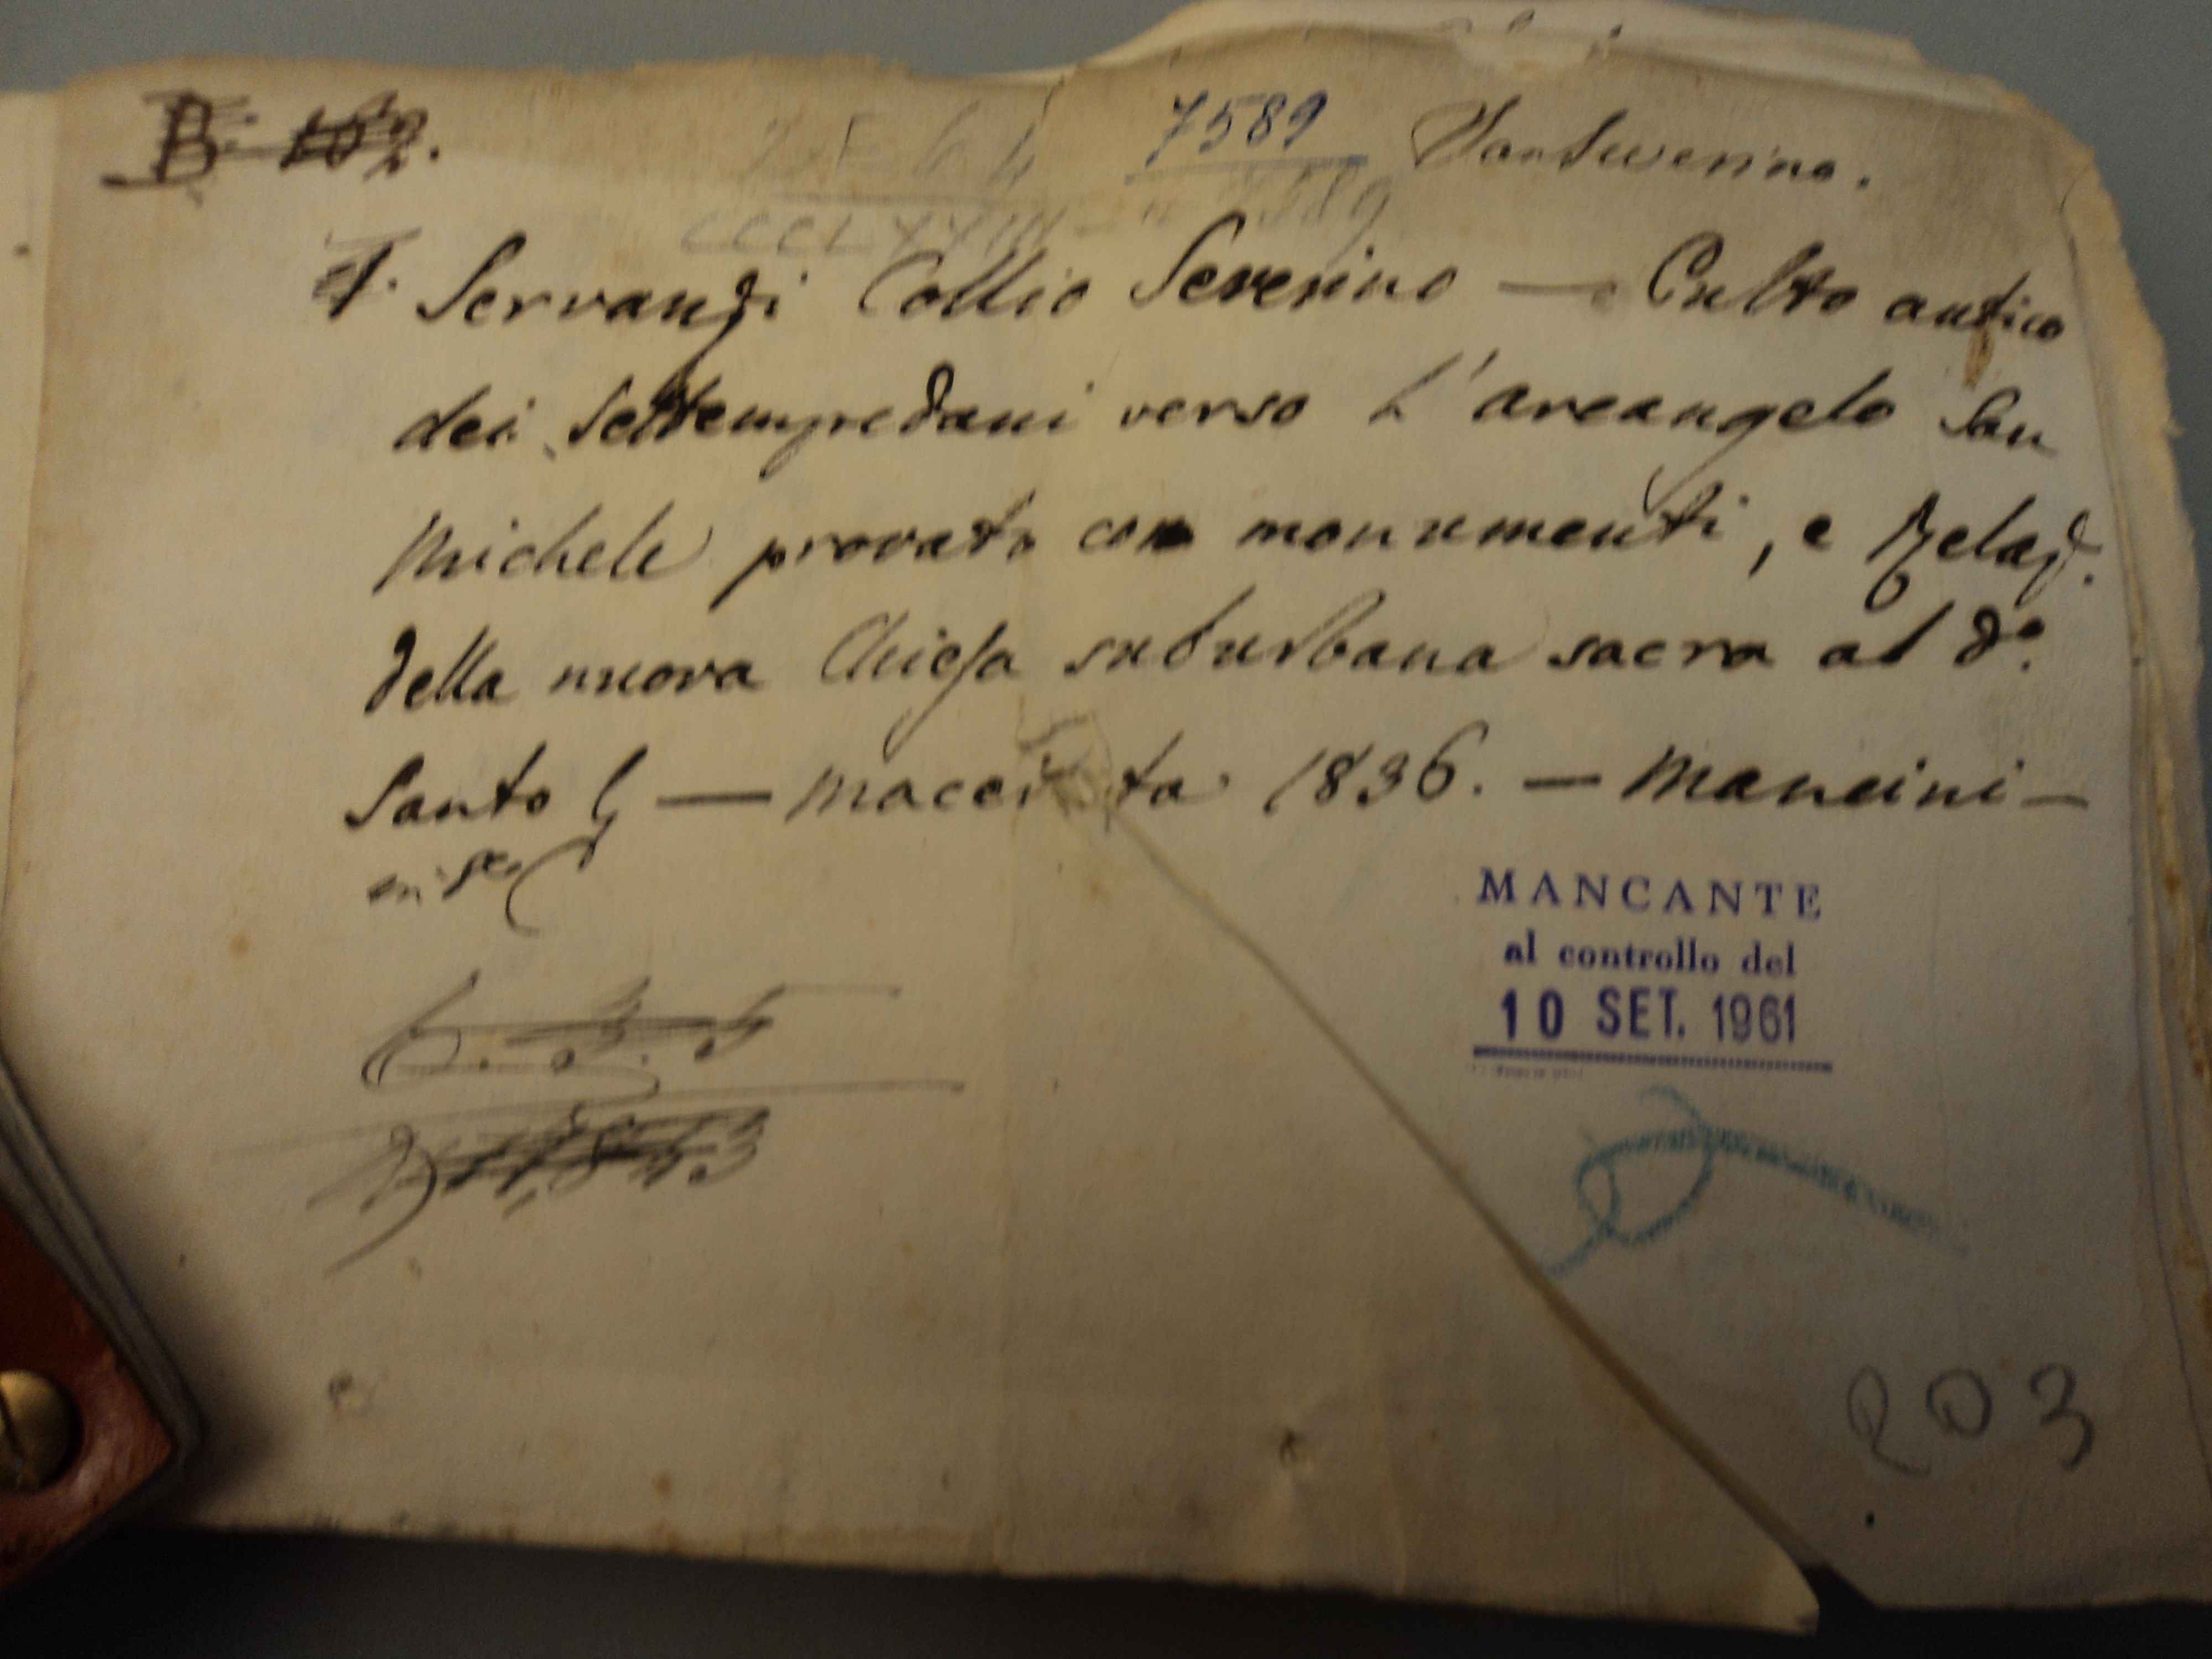 B. 102.
7589 San Severino.
CCCLXXIII - n 7589
1. Servanzi Collio Severino — Culto antico
dei Settempedani verso l'arcangelo San
Michele provato con monumenti, e Relaz.
della nuova Chiesa suburbana sacra al do.
Santo — Macerata 1836. — Mancini —
MANCANTE
al controllo del
10 SET. 1961
203